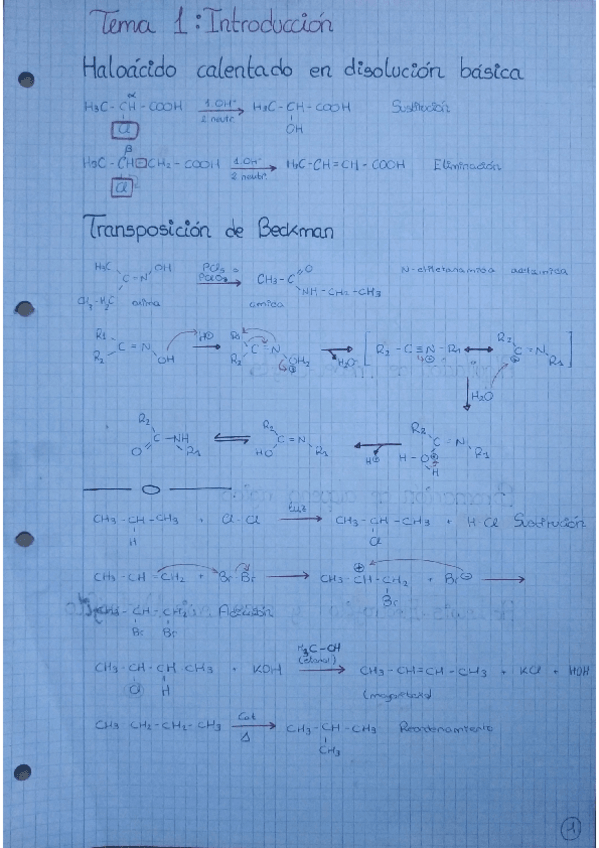 Tema 1: Introducción
Haloácido calentado en disolución básica
α
H3C - CH - COOH 1. OH- 2 neutr. H3C - CH - COOH Sustitución
Cl OH
β
H3C - CH - CH2 - COOH 1. OH- 2 neutr. H3C - CH = CH - COOH Eliminación
Cl
Transposición de Beckman
H3C OH PCl5 o CH3 - C O
C = N NH - CH2 - CH3
oxima amida
R1 C = N OH R2 H⊕ R1 C = N OH2 R2 -H2O [ R2 - C ≡ N - R1 ↔ R2 C = N R1 ]
H2O
R2 C - NH R1 O R2 C = N R1 HO H⊕ R2 C = N R1 H - O H
CH3 - CH - CH3 + Cl - Cl luz CH3 - CH - CH3 + HCl Sustitución
H Cl
CH3 - CH = CH2 + Br - Br CH3 - CH - CH2 + Br⊖
Br
CH3 - CH - CH2 Adición
Br Br
CH3 - CH - CH CH3 + KOH (etanol) CH3 - CH = CH - CH3 + KCl + HOH
Cl H (mayoritario)
CH3 CH2 - CH2 - CH3 Cat Δ CH3 - CH - CH3 Reordenamiento
CH3
1